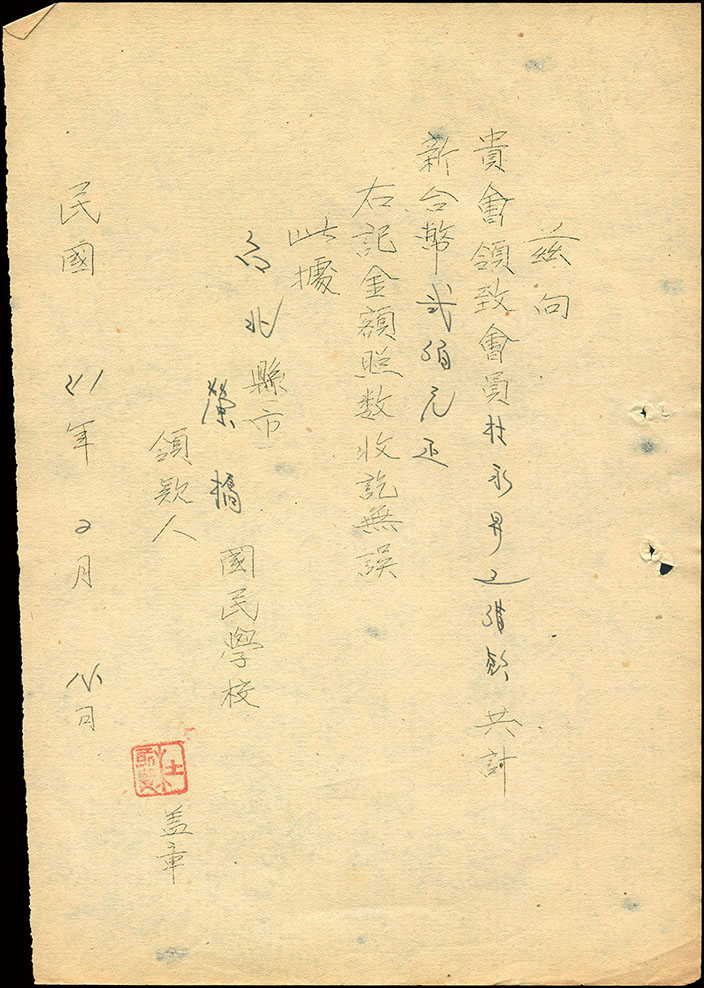 茲向
貴會領致會員杜永昇之 共計
新台幣弍 元正
右記金額照数收訖無誤
此據
台北縣市
螢橋國民學校
領款人
盖章
杜
民國 41年 2月 日